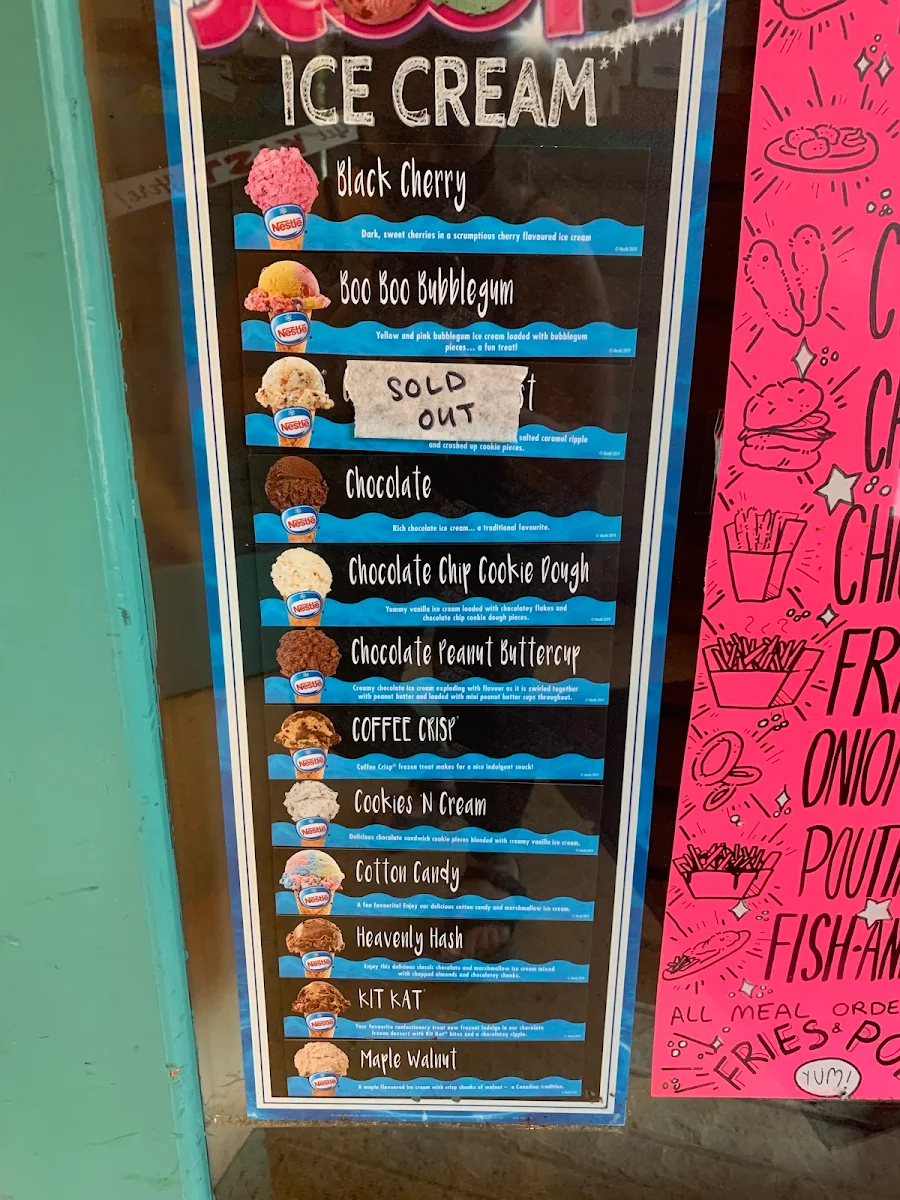 ICE CREAM*
Black Cherry
Nestlé
Dark, sweet cherries in a scrumptious cherry flavoured ice cream
Boo Boo Bubblegum
Nestlé
Yellow and pink bubblegum ice cream loaded with bubblegum
pieces... a fun treat!
SOLD
OUT
st
Nestlé
salted caramel ripple
and crushed up cookie pieces.
Chocolate
Nestlé
Rich chocolate ice cream... a traditional favourite.
Chocolate Chip Cookie Dough
Nestlé
Yummy vanilla ice cream loaded with chocolatey flakes and
chocolate chip cookie dough pieces.
Chocolate Peanut Buttercup
Nestlé
Creamy chocolate ice cream exploding with flavour as it is swirled together
with peanut butter and loaded with mini peanut butter cups throughout.
COFFEE CRISP
Nestlé
Coffee Crisp® frozen treat makes for a nice indulgent snack!
Cookies 'N Cream
Nestlé
Delicious chocolate sandwich cookie pieces blended with creamy vanilla ice cream.
Cotton Candy
Nestlé
A fun favourite! Enjoy our delicious cotton candy and marshmallow ice cream.
Heavenly Hash
Nestlé
Enjoy this delicious classic chocolate and marshmallow ice cream mixed
with chopped almonds and chocolatey chunks.
KIT KAT
Nestlé
Your favourite confectionery treat now frozen! Indulge in our chocolate
frozen dessert with Kit Kat® bites and a chocolatey ripple.
Maple Walnut
Nestlé
A maple flavoured ice cream with crisp chunks of walnut – a Canadian tradition.
C
CH
FR
ONION
POUTI
FISH-AN
ALL MEAL ORDE
FRIES & PO
YUM!